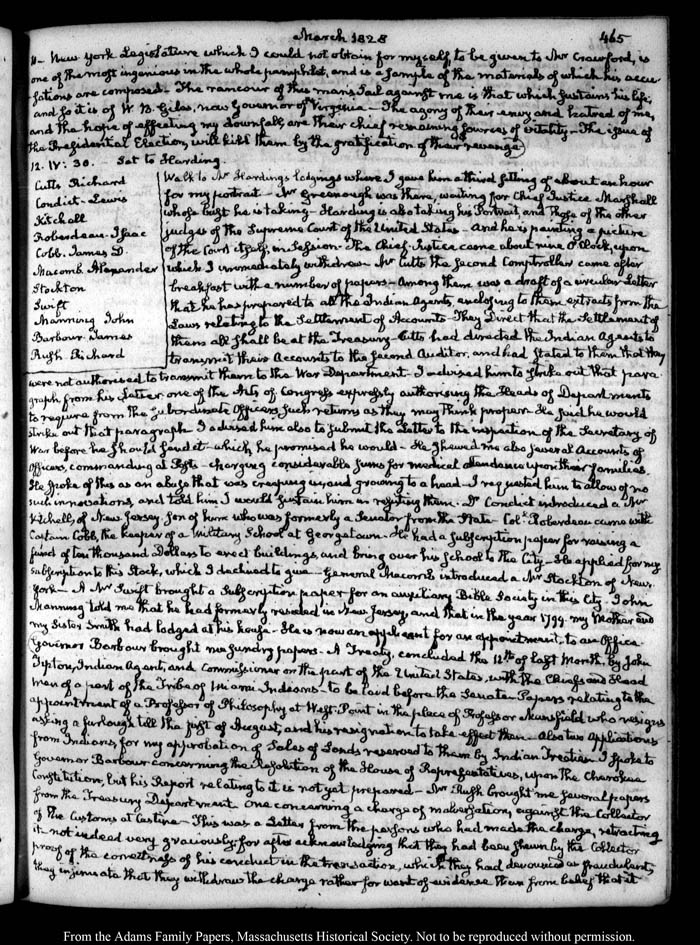 March 1828
465
11- New York Legislature which I could not obtain for myself, to be given to Mr Crawford, is
one of the most ingenious in the whole pamphlet, and is a sample of the materials of which his accu-
sations are composed- The rancour of this man's Soul against me is that which sustains his life,
and so it is of W. B. Giles, now Governor of Virginia- The agony of their envy and hatred of me,
and the hope of effecting my downfall, are their chief remaining sources of vitality- The issue of
the Presidential Election, will kill them by the gratification of their revenge
12. IV: 30. - Sat to Harding.
Cutts Richard
Condict- Lewis
Kitchell
Roberdeau. Isaac
Cobb. James D.
Macomb. Alexander
Stockton
Swift
Manning John
Barbour James
Rush Richard
Walk to Mr Harding's lodgings where I gave him a third sitting of about an hour
for my portrait- Mr Greenough was there, waiting for Chief Justice Marshall
whose bust he is taking- Harding is also taking his Portrait, and those of the other
judges of the Supreme Court of the United States- And he is painting a picture
of the Court itself, in Session- The Chief Justice came about nine O'Clock, upon
which I immediately withdrew- Mr Cutts the second Comptroller came after
breakfast with a number of papers- Among them was a draft of a circular Letter
that he has prepared to all the Indian Agents, enclosing to them extracts from the
Laws relating to the Settlement of Accounts- They Direct that the Settlement of
them all shall be at the Treasury- Cutts had directed the Indian Agents to
transmit their Accounts to the Second Auditor, and had stated to them that they
were not authorised to transmit them to the War Department- I advised him to strike out that para-
graph from his Letter one of the Acts of Congress expressly authorising the Heads of Departments
to require from the subordinate Officers, such returns as they may think proper- He said he would
strike out that paragraph. I advised him also to submit the Letter to the inspection of the Secretary of
War before he should send it- which he promised he would- He shewed me also several Accounts of
Officers, commanding at Posts- charging considerable sums for medical attendance upon their families.
He spoke of this as an abuse that was creeping in, and growing to a head- I requested him to allow of no
such innovations, and told him I would sustain him in rejecting them. Dr Condict introduced a Mr
Kitchell, of New Jersey, son of him who was formerly a Senator from the State- Col. Roberdeau came with
Captain Cobb, the keeper of a Military School at Georgetown- He had a subscription paper for raising a
fund of ten thousand Dollars to erect buildings, and bring over his school to the City- He applied for my
subscription to this Stock, which I declined to give- General Macomb introduced a Mr Stockton of New
York- A Mr Swift brought a subscription paper for an auxiliary Bible Society in this City. John
Manning told me that he had formerly resided in New Jersey, and that in the year 1799. my Mother and
my Sister Smith had lodged at his house- He is now an applicant for an appointment, to an Office-
Governor Barbour brought me sundry papers- A Treaty, concluded the 12th of last Month, by John
Tipton, Indian Agent, and Commissioner on the part of the United States, with the Chiefs and Head
men of a part of the Tribe of Miami Indians- to be laid before the Senate- Papers relating to the
appointment of a Professor of Philosophy at West-Point in the place of Professor Mansfield who resigns
asking a furlough till the first of August, and his resignation to take effect then- Also two Applications
from Indians, for my approbation of Sales of Lands reserved to them by Indian Treaties- I spoke to
Governor Barbour concerning the Resolution of the House of Representatives, upon the Cherokee
Constitution, but his Report relating to it is not yet prepared- Mr Rush brought me several papers
from the Treasury Department one concerning a charge of malversation, against the Collector
of the Customs at Castine- This was a Letter from the persons who had made the charge, retracting
it- not indeed very graciously; for after acknowledging that they had been shewn by the Collector
proof of the correctness of his conduct in the transaction, which they had denounced as fraudulent,
they insinuate that they withdraw the charge rather for want of evidence than from belief that it
From the Adams Family Papers, Massachusetts Historical Society. Not to be reproduced without permission.